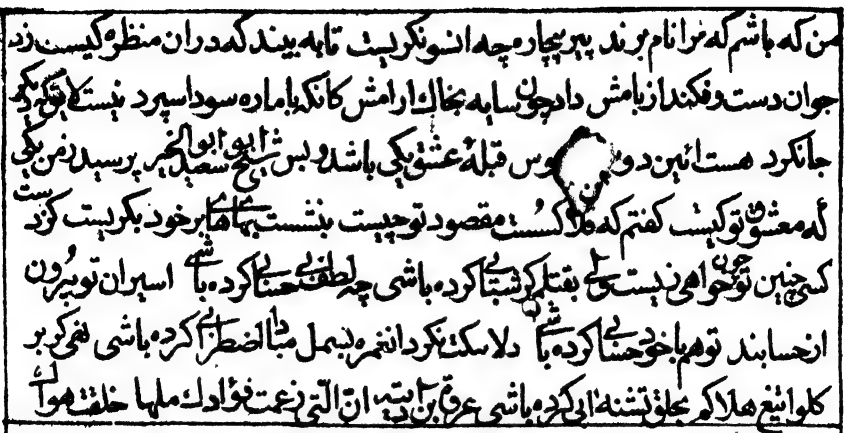 من که باشم که مرا نام برند پیر بیچاره چه انسو نکریست تا به بیند که دران منظره کیست زد
جوان دست و فکند از بامش داد چون سایه بخاك ارامش کانکه با ماره سودا سپرد نیست لایق که دکر
جا نکرد هست ائین دو وس قبلهٔ عشق یکی باشد و بس شیخ ابو سعید ابو الخیر پرسید ز من یکی
که معشوق تو کیست کفتم که فلان کسست مقصود تو چیست بنشست بهای های بر خود بکریست کز دست
کسی چنین تو چون خواهی زیست ولی بقتلم کر شتابی کرده باشی چه لطف بی حسابی کرده باشی اسیران تو بیرون
از حسابند تو هم با خود حسابی کرده باشی دلا سکت نکردان غمزه بسمل مبادا اضطرابی کرده باشی نفی کر بر
کلوا تیغ هلاکم بحلق تشنه ابی کرده باشی عروة بن ان التی زعمت فؤادك ملها خلقت هواك